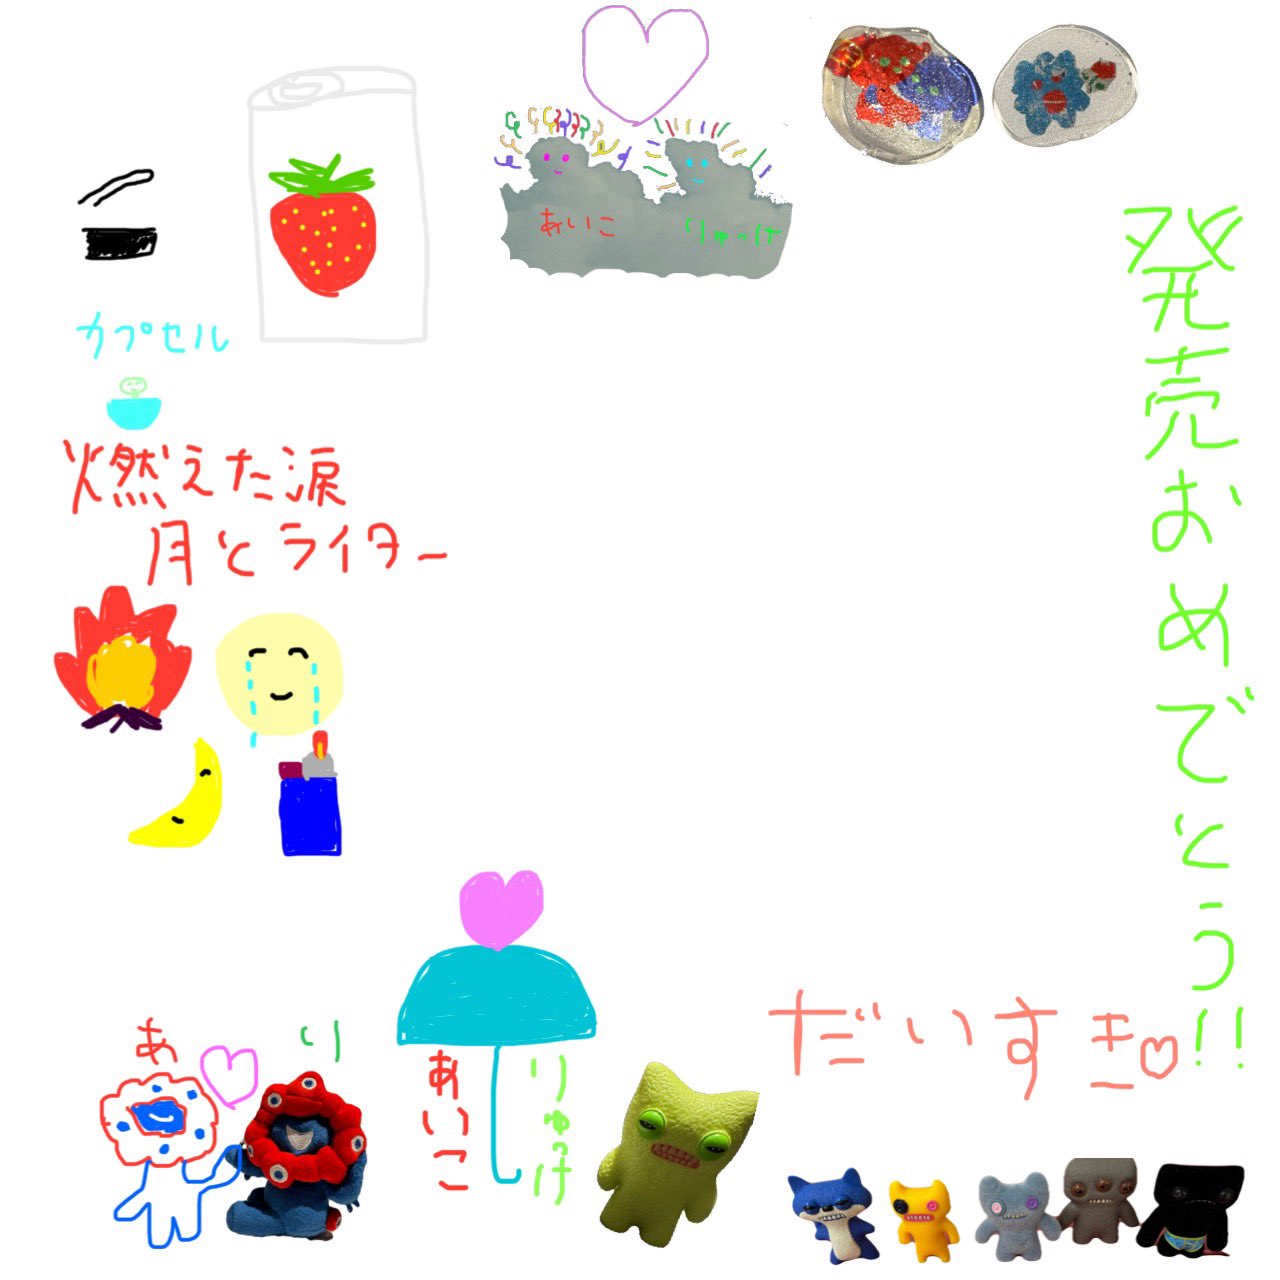 あいこ
りゅっけ
カプセル
燃えた涙
月とライター
発売おめでとう!!
だいすき♡
あ
り
あいこ
りゅっけ